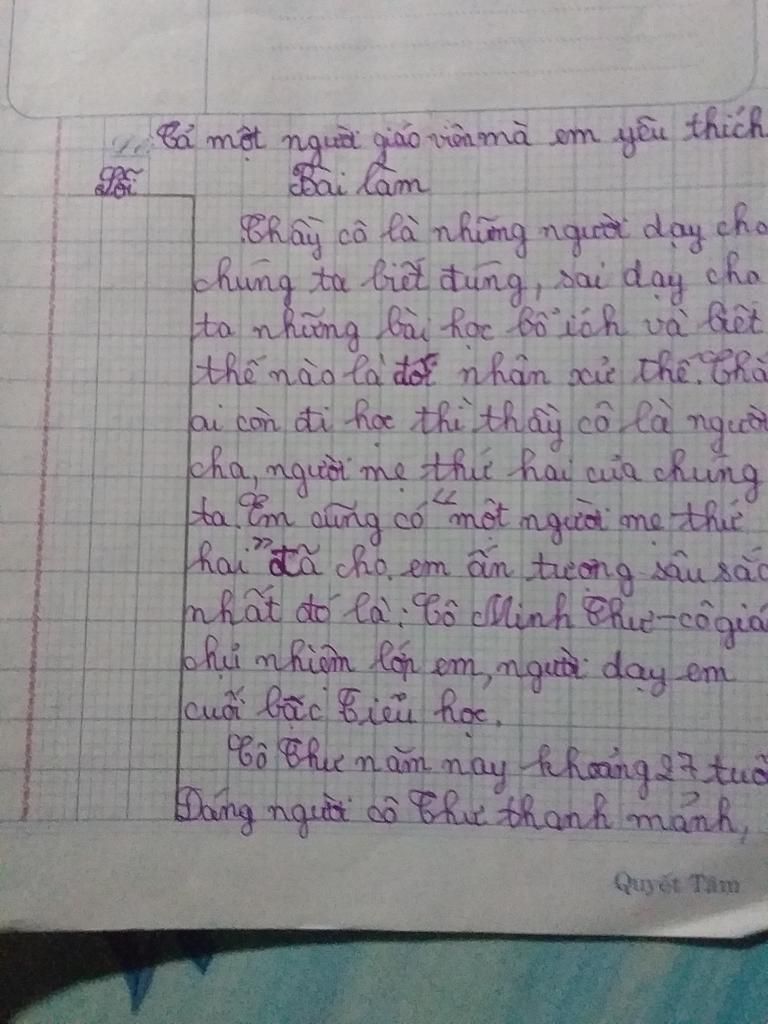 Tả một người giáo viên mà em yêu thích
Bài làm
Thầy cô là những người dạy cho
chúng ta biết đúng, sai dạy cho
ta những bài học bổ ích và biết
thế nào là đối nhân xử thế. Thầ
ai còn đi học thì thầy cô là người
cha, người mẹ thứ hai của chúng
ta. Em cũng có "một người mẹ thứ
hai" đã cho em ấn tượng sâu sắc
nhất đó là: Cô Minh Thư - cô giá
chủ nhiệm lớp em, người dạy em
cuối bậc Tiểu học.
Cô Thư năm nay khoảng 27 tuổ
Dáng người cô Thư thanh mảnh,
Quyết Tâm